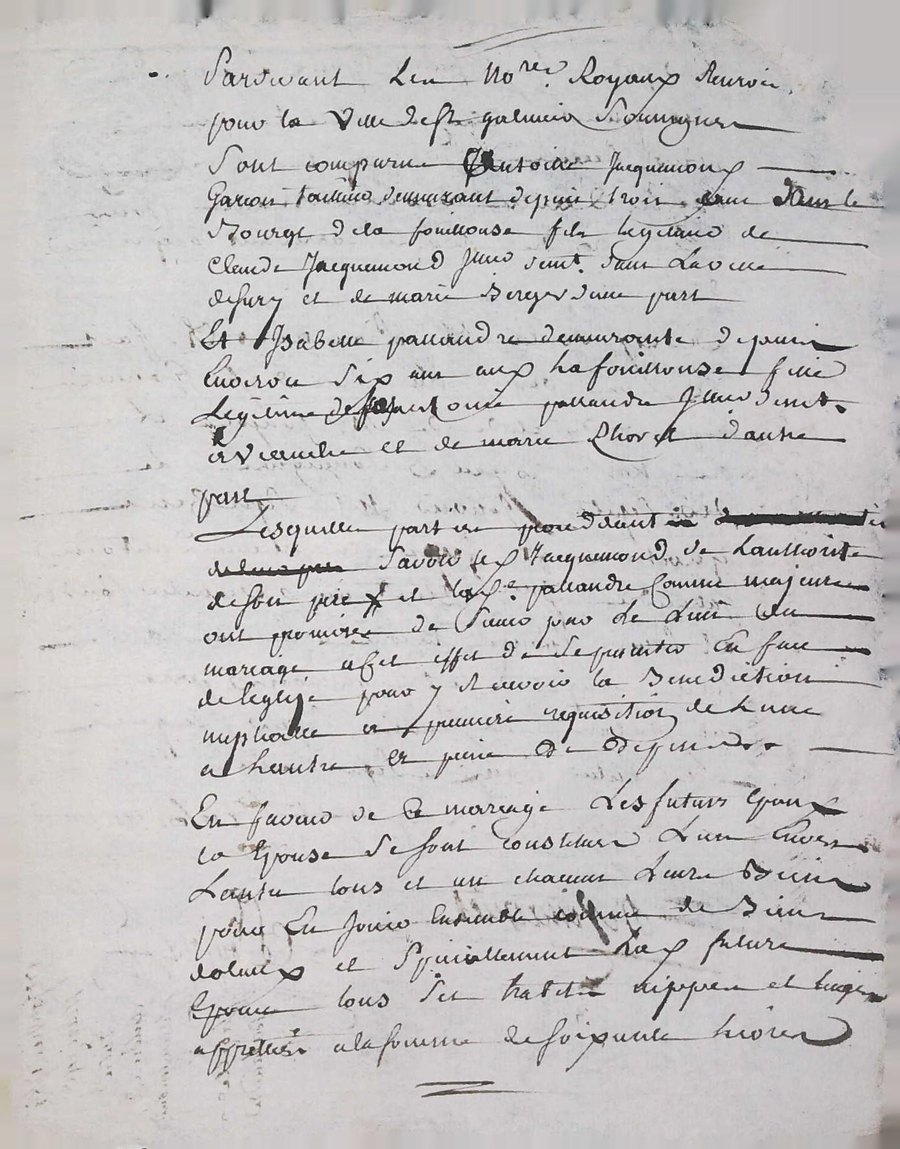 Pardevant Les No.res Royaux
pour la Ville de St galmier Soussignes
Sont comparus Antoine Jacquemond
Garçon demeurant depuis trois ans dans le
Bourg de la fouillouse fils legitime de
Claude Jacquemond dans La ville
de Sury et de marie Berger dune part
Et Isabelle pallandre demeurante depuis
Environ Six ans aux La fouillouse fille
Legitime de pallandre
a Veauche et de marie dautre
part
Lesquelles parties procedant
Savoir led. Jacquemond de Lauthorité
de son pere et lad. pallandre Comme majeure
ont promis de Sunir par Le Lien du
mariage a Cet effet de Se presenter En face
de leglise pour y Recevoir la Benediction
nuptialle a premiere requisition de Lune
a Lautre a peine de depends
En faveur de Ce mariage Les futurs Epoux
et Epouse Se Sont constitues Lun Envers
Lautre tous et un chacuns Leurs Biens
pour En Jouir Ensemble comme de Biens
dotaux et Speciallement Lad. future
Epouse tous Ses habits nippes et linges
a la Somme de Soixante livres